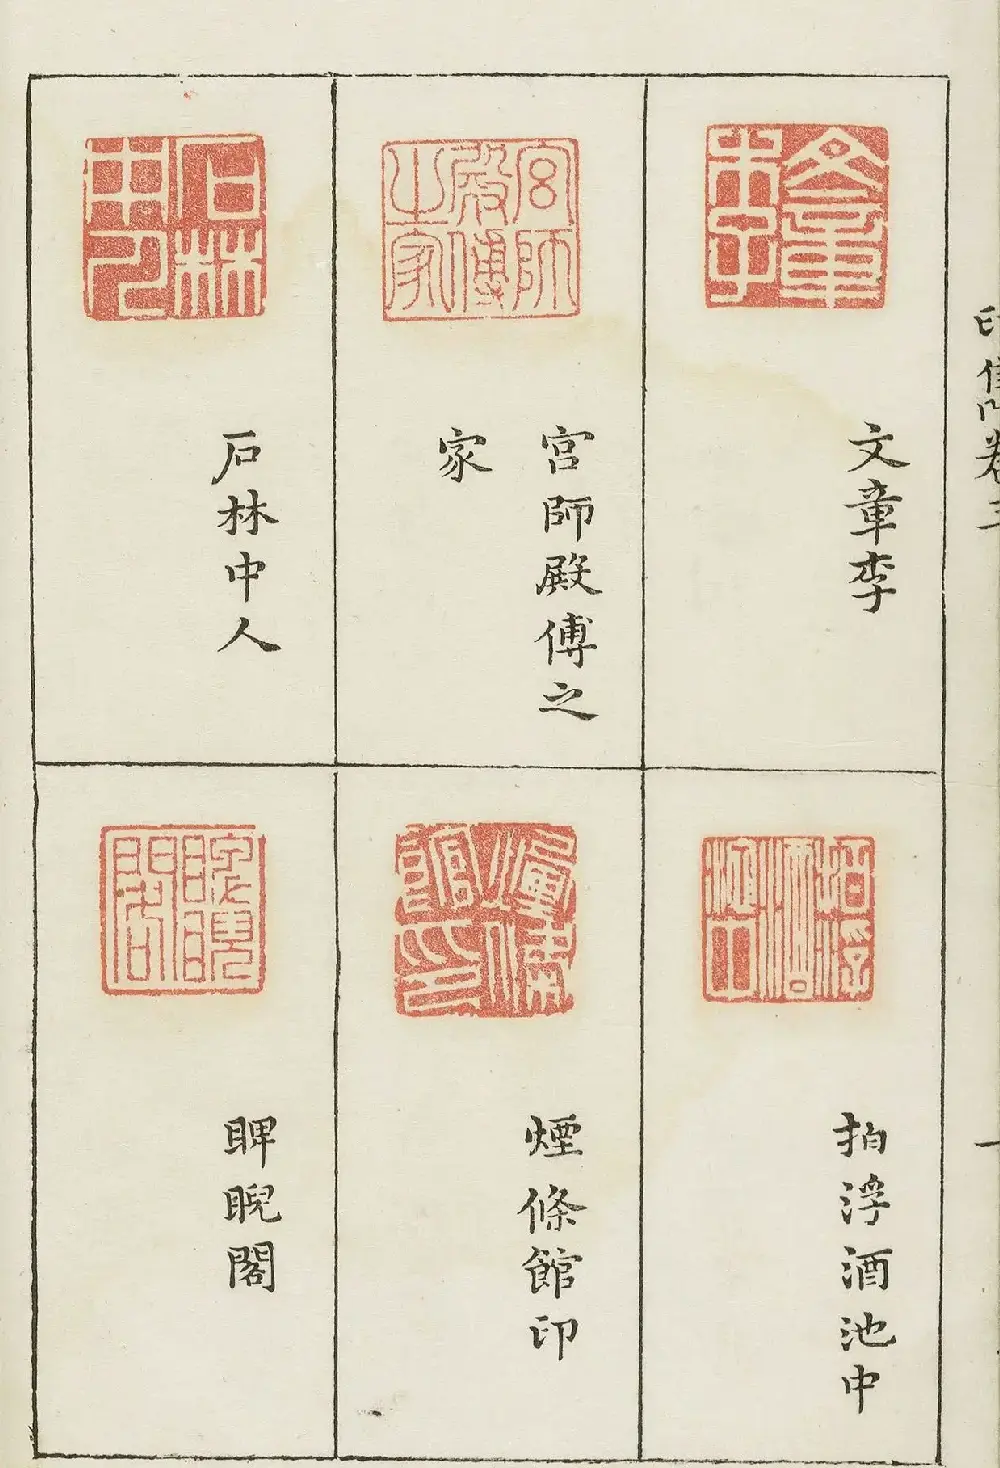 印信門卷三
文章李
宮師殿傅之
家
石林中人
拍浮酒池中
煙條館印
睥睨閣